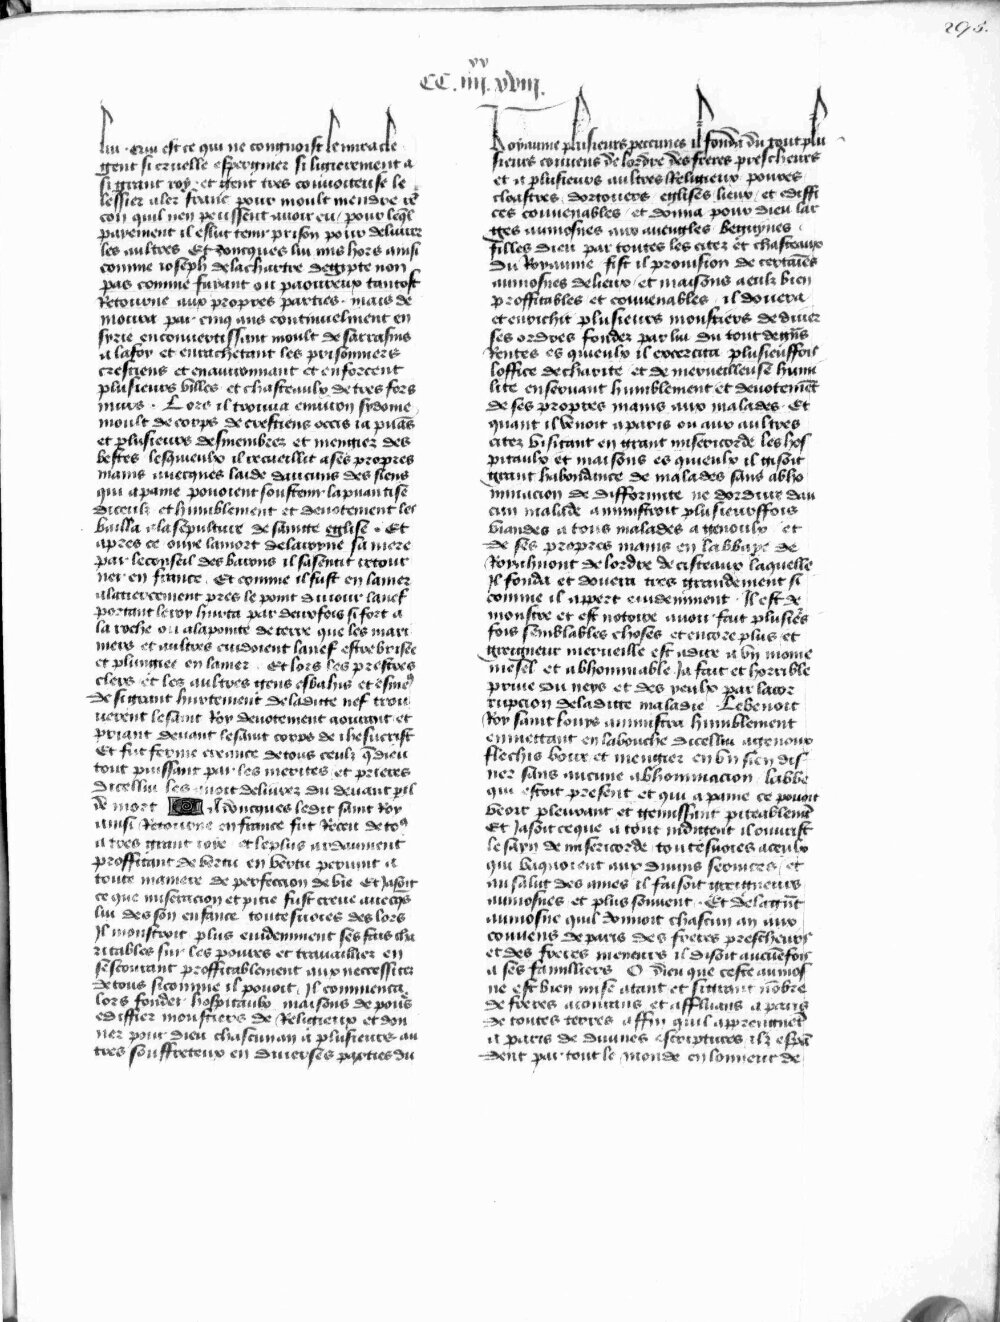 295.
CC.iiii.xviii.
xx
lui. Et qui est ce qui ne congnoist le miracle
gent si cruelle espargnier si ligierement a
si grant roy et gent tres convoiteuse le
lessier aler franc pour moult mendre
con quil nen peussent avoir eu pour leql
paiement il eslut tenir prison pour delivrer
les aultres. Et doncques lui mis hors ainsi
comme ioseph de la chartre degipte non
pas comme fuiant ou paoureux tantost
Retourne aux propres parties. mais de
moura par cinq ans continuelment en
syrie en convertissant moult de sarrasins
a la foy et en rachetant les prisonniers
crestiens et en avironnant et enforcent
plusieurs villes et chasteaulx de tres fors
murs. Lors il trouva environ sydome
moult de corps de crestiens occis ia puās
et plusieurs desmembrez et mengiez des
bestes lesquieulx il recueillit a ses propres
mains avecques laide daucuns des siens
qui a paine pouoient soustenir la puantise
diceulx et humblement et devotement les
bailla a la sepulture de saincte eglise. Et
apres ce ouye la mort de la royne sa mere
par le conseil des barons il sasentit retour
ner en france. Et comme il fust en la mer
a la tiercement pres le point du iour la nef
portant le roy hurta par deux fois si fort a
la roche ou a la pointe de terre que les mari
niers et aultres cuidoient la nef estre brisee
et plungiee en la mer. Et lors les prestres
clers et les aultres gens esbahis et esmeꝰ
de si grant hurtement de la ditte nef trou
verent le saint Roy devotement aourant et
priant devant le saint corps de ihesucrist
Et fut ferme creance de tous ceulx q̄ dieu
tout puissant par les merites et prieres
dicellui les avoit delivrez du devant pil
de mort il doncques ledit saint Roy
ainsi Retourne en france fut Receu de toꝰ
a tres grant ioye et le plus ardaument
proffitant de vertu en vertu pervint a
toute maniere de perfeccion de vie Et Jasoit
ce que miseracion et pitie fust creue avecqs
lui des son enfance toutesvoies des lors
Il monstroit plus evidemment ses fais cha
ritables sur les povres et travaillier en
ses courant proffitablement aux necessitez
de tous si comme il pouoit. Il commenca
lors fonder hospitaulx maisons de povrs
ediffier moustiers de Religieux et don
ner pour dieu chascun an a plusieurs au
tres souffreteux en diverses parties du
Royaume plusieurs peccunes il fonda du tout plu
sieurs couvens de lordre des freres prescheurs
et a plusieurs aultres Religieux povres
cloistres dortouers eglises lieux et ediffi
ces convenables et donna pour dieu lar
ges aumosnes aux aveugles beguynes
filles dieu par toutes les citez et chasteaux
du Royaume fist il provision de certaines
aumosnes de lieux et maisons a eulx bien
proffitables et convenables. il douera
et enrichit plusieurs moustiers de diver
ses ordres fondez par lui du tout de gñs
Rentes es quieulx il excercita plusieuffois
loffice de charite et de merveilleuse humi
lite en servant humblement et devotemēt
de ses propres mains aux malades. Et
quant il venoit a paris ou aux aultres
citez visitant en grant misericorde les hos
pitaulx et maisons es quieulx il gisoit
grant habondance de malades sans abho
minacion de difformite ne dordure dau
cun malade aministroit plusieursfois
viandes a tous malades a genoulx et
de ses propres mains en labbaye de
Royaulmont de lordre de cisteaux laquelle
Il fonda et douera tres grandement si
comme il appert evidemment. Il est de
monstre et est notoire avoir fait plusieꝰs
fois semblables choses et encore plus et
greigneur merveille est a dire a un moine
mesel et abhominable Ja fait et horrible
prive du neys et des yeulx par la cor
rupcion de la ditte maladie. Le benoit
Roy saint loys aministra humblement
en mettant en la bouche dicellui a genoux
flechis boire et mengier en un sien dis
ner sans aucune abhominacion labbe
qui estoit present et qui a paine ce pouoit
veoir pleurant et gemissant piteablemēt
Et Jasoit ce que a tout indigent il ouvrist
le sayn de misericorde toutesvoies a ceulx
qui vaquoient aux divins services et
au salut des ames il faisoit greigneurs
aumosnes et plus souvent. Et de la gñt
aumosne quil donnoit chascun an aux
couvens de paris des freres prescheurs
et des freres meneurs il disoit aucunefois
a ses familliers O dieu que ceste aumos
ne est bien mise a tant et si grant nōbre
de freres acourans et affluans a paris
de toutes terres affin quil apprengnēt
a paris de divines escriptures ilz espā
dent par tout le monde en lonneur de